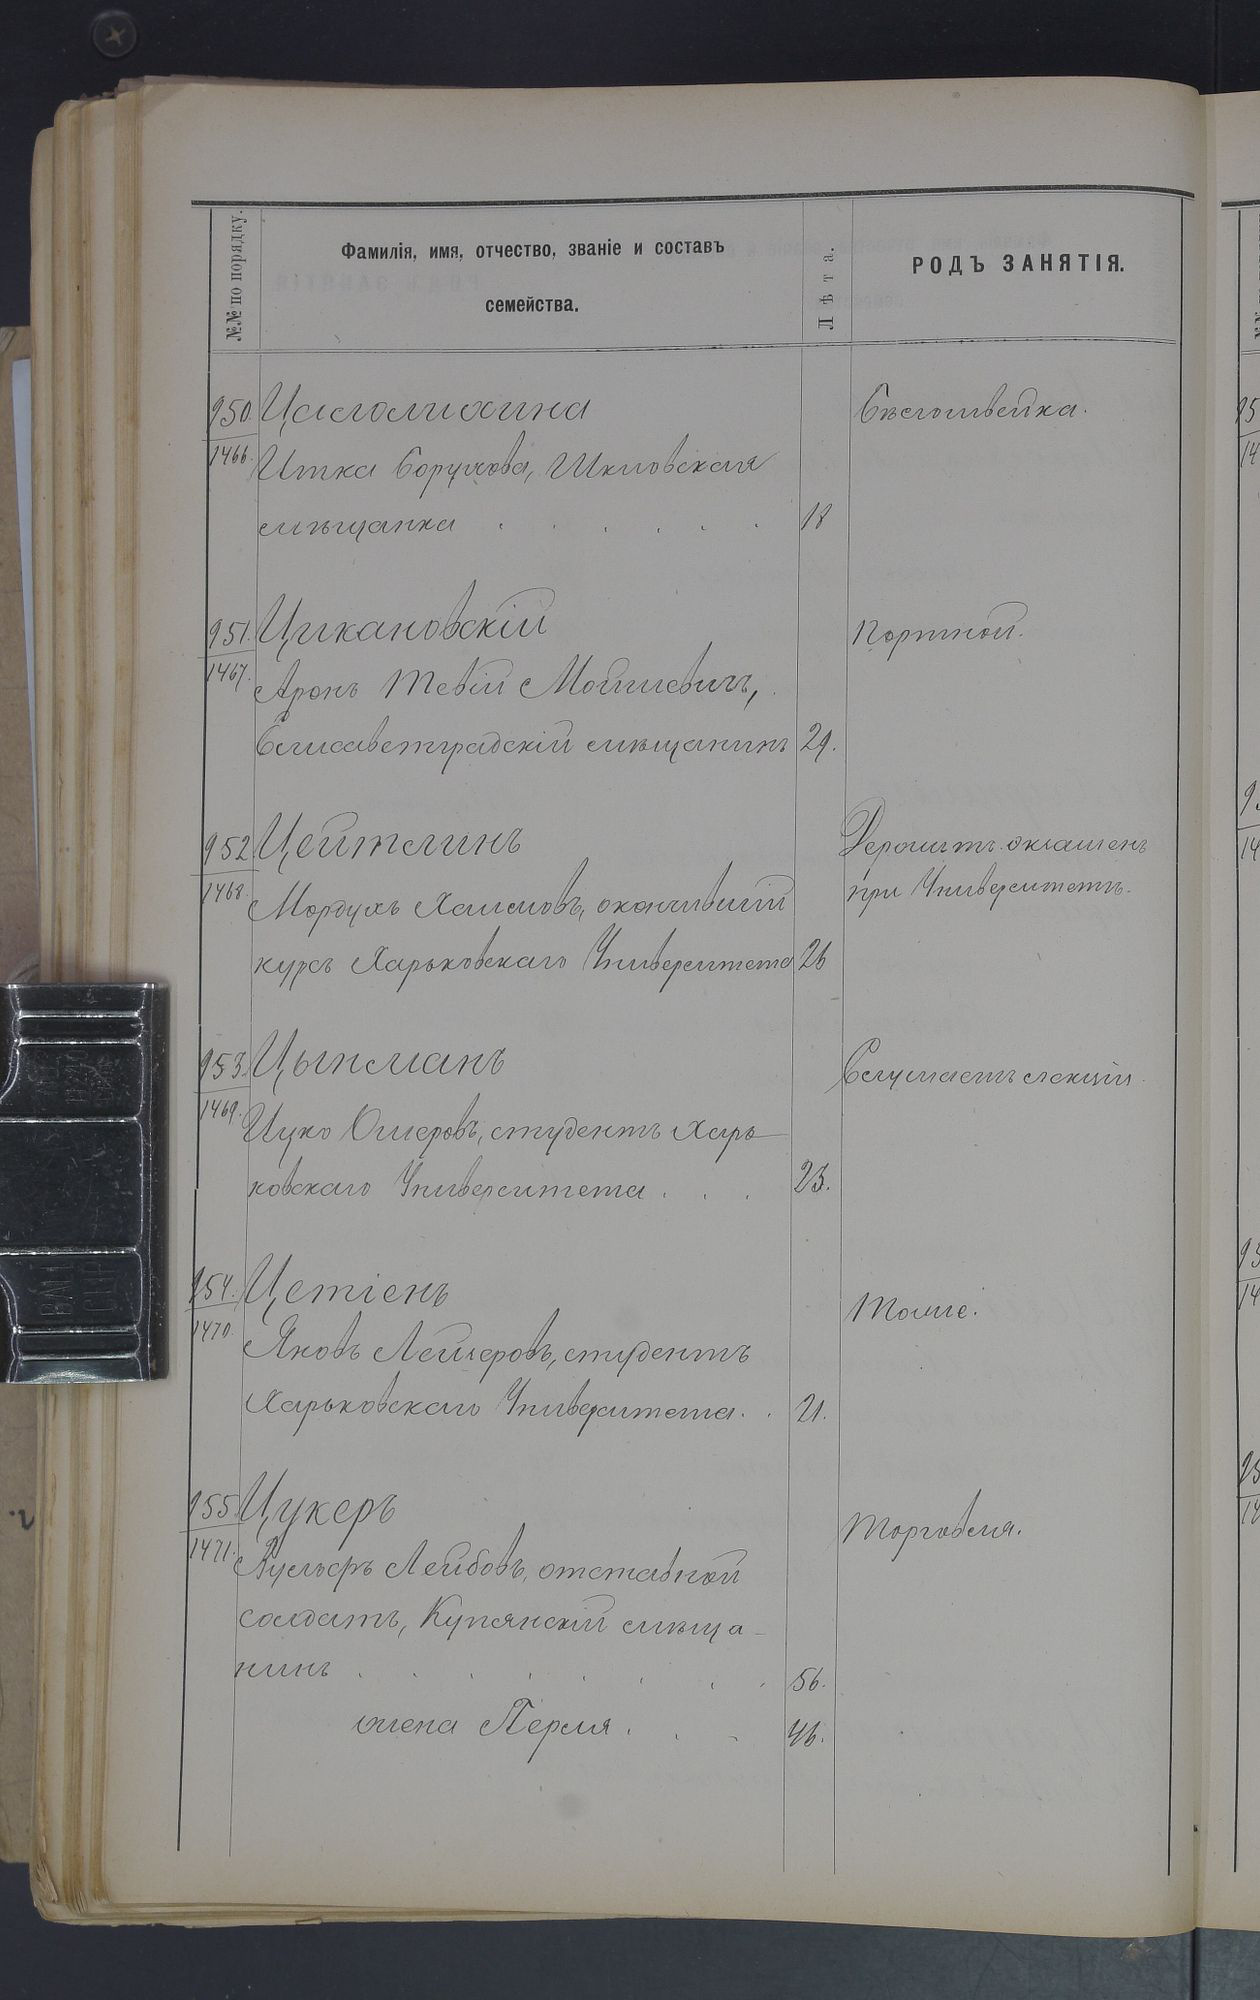 №№ по порядку.
Фамилія, имя, отчество, званіе и составъ
семейства.
Лѣта.
РОДЪ ЗАНЯТІЯ.
950. Цаломихина
Бѣлошвейка.
1466. Итка Борухова, Шкловская
мѣщанка . . . . . 18
951. Цикановскій
Портной.
1467. Аронъ Тевій Мошкевичъ,
Елисаветградскій мѣщанинъ 29.
952 Цейтлинъ
Держитъ экзаменъ
1468. Мордухъ Хаимовъ, окончившій
при Университетѣ.
курсъ Харьковскаго Университета 26
953. Цыпманъ
Слушаетъ лекціи.
1469. Ицко Ошеровъ, студентъ Харь
ковскаго Университета . . . 23.
954. Цетіенъ
Тоже.
1470. Яковъ Лейзеровъ, студентъ
Харьковскаго Университета . . 21.
955. Цукеръ
Торговля.
1471. Лейбовъ, отставной
солдатъ, Купянскій мѣща-
нинъ . . . . . . . 56.
жена Перля . . . 46.
BALL
CLIP